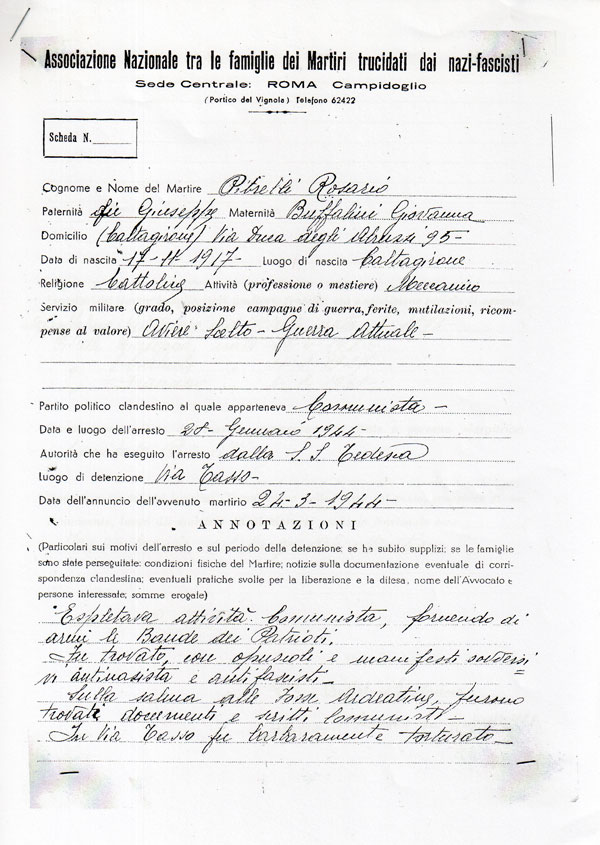 Associazione Nazionale tra le famiglie dei Martiri trucidati dai nazi-fascisti
Sede Centrale: ROMA Campidoglio
(Portico del Vignola) Telefono 62422
Scheda N.
Cognome e Nome del Martire Pitrelli Rosario
Paternità fu Giuseppe Maternità Buffalini Giovanna
Domicilio (Caltagirone) Via Duca degli Abruzzi 95-
Data di nascita 17-11-1917- Luogo di nascita Caltagirone
Religione Cattolica Attività (professione o mestiere) Meccanico
Servizio militare (grado, posizione campagne di guerra, ferite, mutilazioni, ricom-
pense al valore) Aviere Scelto - Guerra Attuale -
Partito politico clandestino al quale apparteneva Comunista -
Data e luogo dell'arresto 28- Gennaio 1944-
Autorità che ha eseguito l'arresto dalla S.S Tedesca
luogo di detenzione Via Tasso-
Data dell'annuncio dell'avvenuto martirio 24-3-1944-
ANNOTAZIONI
(Particolari sui motivi dell'arresto e sul periodo della detenzione; se ha subito supplizi; se le famiglie
sono state perseguitate: condizioni fisiche del Martire; notizie sulla documentazione eventuale di corri-
spondenza clandestina; eventuali pratiche svolte per la liberazione e la difesa, nome dell'Avvocato e
persone interessate; somme erogate)
Espletava attività Comunista, fornendo di
armi le Bande dei Patrioti.
Fu trovato, con opuscoli e manifesti sovversi=
vi antinasista e antifascisti-
Sulla salma alle Foss Ardeatine, furono
trovati documenti e scritti Comunisti-
In Via Tasso fu barbaramente torturato-